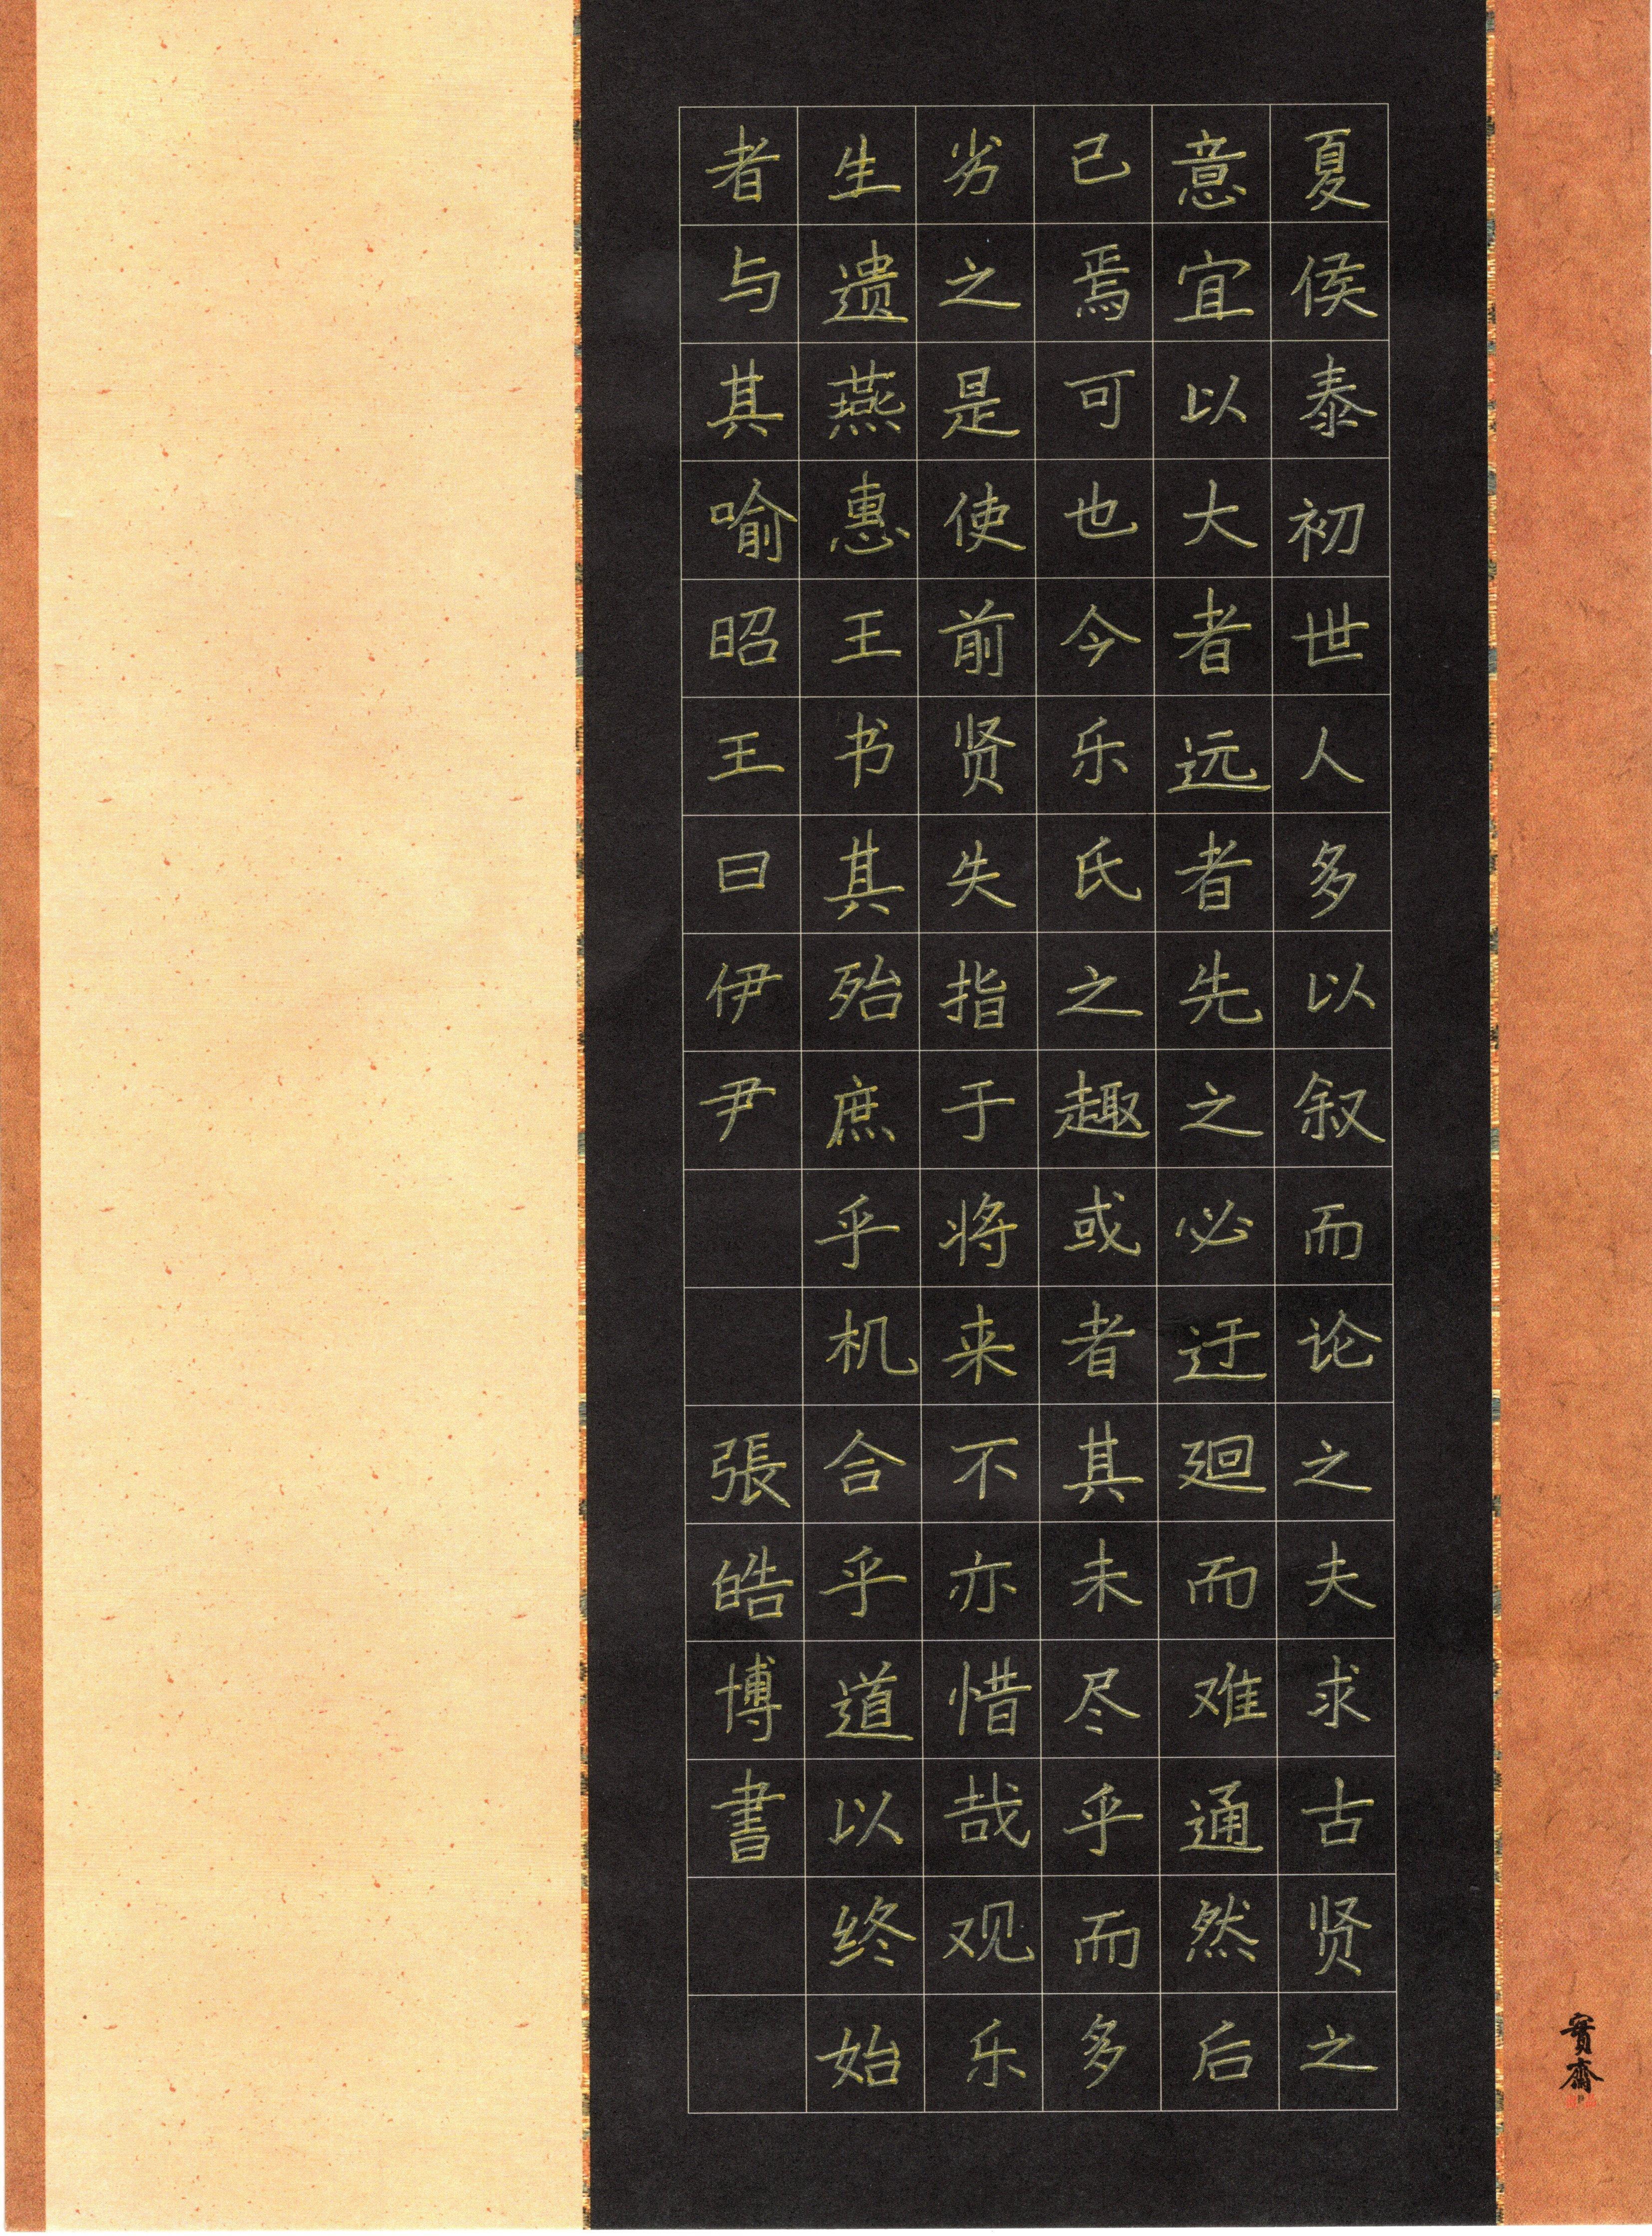 夏侯泰初世人多以叙而论之夫求古贤之
意宜以大者远者先之必迂廻而难通然后
已焉可也今乐氏之趣或者其未尽乎而多
劣之是使前贤失指于将来不亦惜哉观乐
生遗燕惠王书其殆庶乎机合乎道以终始
者与其喻昭王曰伊尹
張皓博書
寳齋